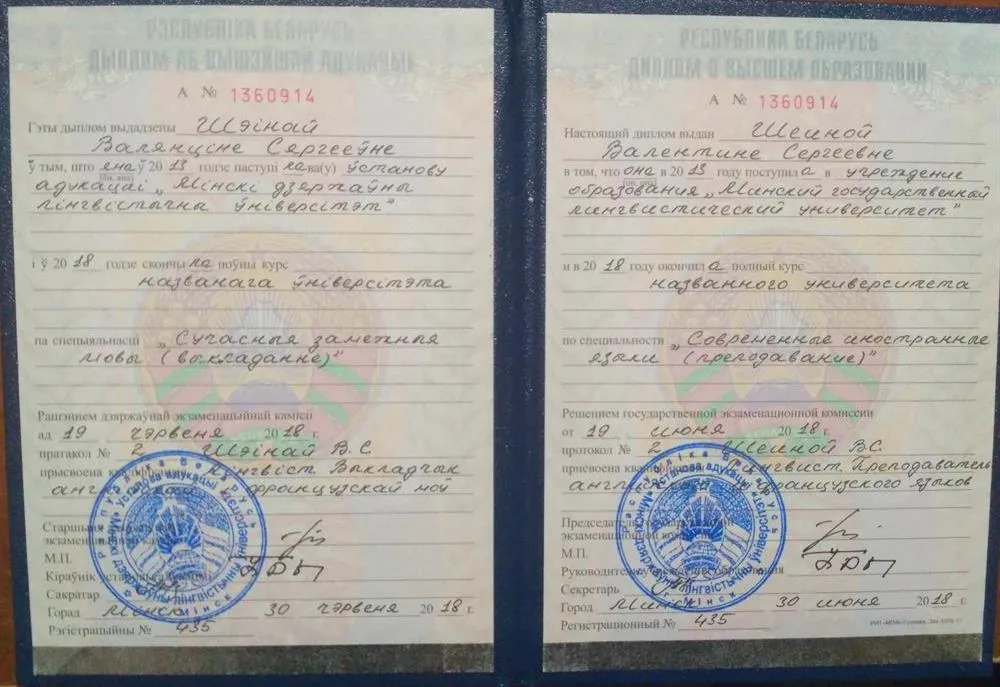 РЭСПУБЛІКА БЕЛАРУСЬ
ДЫПЛОМ АБ ВЫШЭЙШАЙ АДУКАЦЫІ
А № 1360914
Гэты дыплом выдадзены Шэінай
Валянціне Сяргееўне
ў тым, што яна ў 2013 годзе паступіла ва(у) ўстанову
адукацыі „Мінскі дзяржаўны
лінгвістычны ўніверсітэт"
і ў 2018 годзе скончыла поўны курс
названага ўніверсітэта
па спецыяльнасці „Сучасныя замежныя
мовы (выкладанне)"
Рашэннем дзяржаўнай экзаменацыйнай камісіі
ад 19 чэрвеня 2018 г.
пратакол № 2 Шэінай В.С
прысвоена Лінгвіст Выкладчык
французскай моў
Старшыня
экзаменацыйнай
М.П.
Кіраўнік
Сакратар
Горад Мінск 30 чэрвеня 2018 г.
Рэгістрацыйны № 435
Рэспубліка Беларусь
Установа адукацыі «Мінскі дзяржаўны лінгвістычны ўніверсітэт»
г. Мінск
РЕСПУБЛИКА БЕЛАРУСЬ
ДИПЛОМ О ВЫСШЕМ ОБРАЗОВАНИИ
А № 1360914
Настоящий диплом выдан Шеиной
Валентине Сергеевне
в том, что она в 2013 году поступила в учреждение
образования „Минский государственный
лингвистический университет"
и в 2018 году окончила полный курс
названного университета
по специальности „Современные иностранные
языки (преподавание)"
Решением государственной экзаменационной комиссии
от 19 июня 2018 г.
протокол № 2 Шеиной В.С.
присвоена Лингвист Преподаватель
французского языков
Председатель государственной
экзаменационной
М.П.
Руководитель образования
Секретарь
Город Минск 30 июня 2018 г.
Регистрационный № 435
Рэспубліка Беларусь
Установа адукацыі «Мінскі дзяржаўны лінгвістычны ўніверсітэт»
г. Мінск